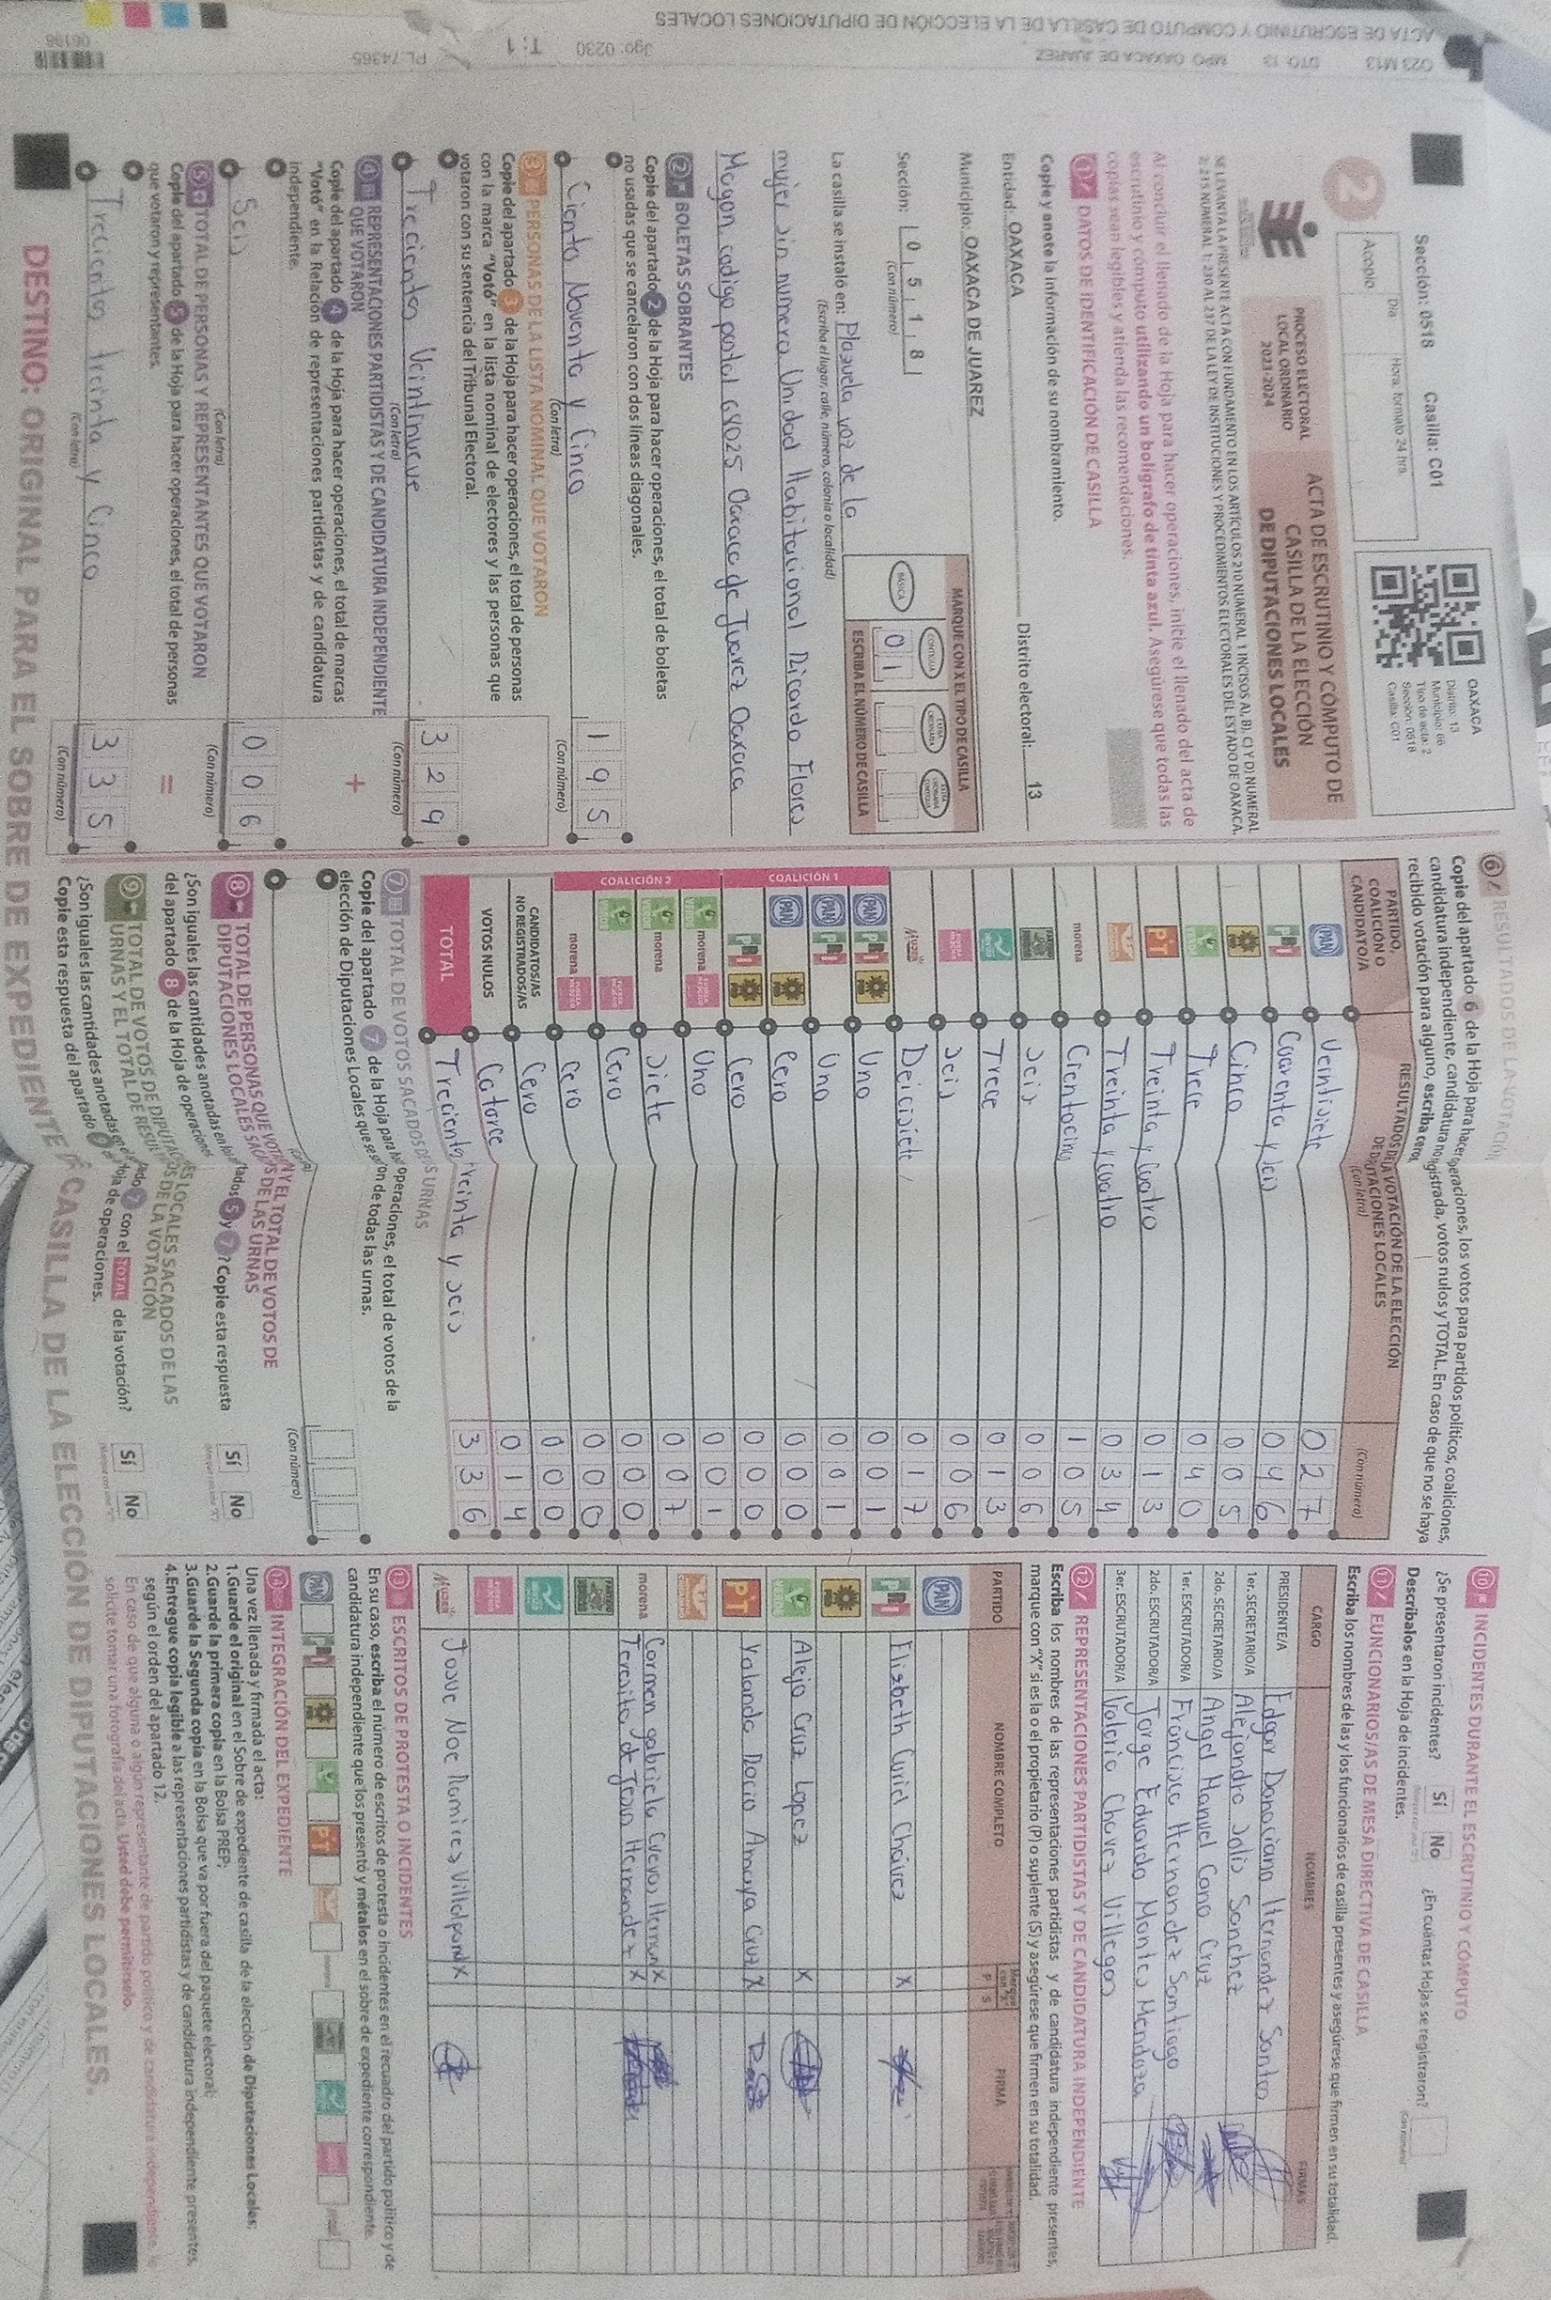 Sección: 0518 Casilla: C01
Día Hora, formato 24 hrs.
Acopio
OAXACA
Distrito: 13
Municipio: 66
Tipo de acta: 2
Sección: 0518
Casilla: C01
2
PROCESO ELECTORAL
LOCAL ORDINARIO
2023-2024
ACTA DE ESCRUTINIO Y CÓMPUTO DE
CASILLA DE LA ELECCIÓN
DE DIPUTACIONES LOCALES
SE LEVANTA LA PRESENTE ACTA CON FUNDAMENTO EN LOS ARTÍCULOS 210 NUMERAL 1 INCISOS A), B), C) Y D) NUMERAL
2; 215 NUMERAL 1; 230 AL 237 DE LA LEY DE INSTITUCIONES Y PROCEDIMIENTOS ELECTORALES DEL ESTADO DE OAXACA.
Al concluir el llenado de la Hoja para hacer operaciones, inicie el llenado del acta de
escrutinio y cómputo utilizando un bolígrafo de tinta azul. Asegúrese que todas las
copias sean legibles y atienda las recomendaciones.
1 DATOS DE IDENTIFICACIÓN DE CASILLA
Copie y anote la información de su nombramiento.
Entidad: OAXACA Distrito electoral: 13
Municipio: OAXACA DE JUAREZ
Sección: 0 5 1 8
(Con número)
MARQUE CON X EL TIPO DE CASILLA
BÁSICA CONTIGUA EXTRA ORDINARIA EXTRA ORDINARIA CONTIGUA
0 1
ESCRIBA EL NÚMERO DE CASILLA
La casilla se instaló en: Plazuela voz de la
(Escriba el lugar, calle, número, colonia o localidad)
mujer sin numero Unidad Habitacional Ricardo Flores
Magon codigo postal 68025 Oaxaca de Juarez Oaxaca
2 BOLETAS SOBRANTES
Copie del apartado 2 de la Hoja para hacer operaciones, el total de boletas
no usadas que se cancelaron con dos líneas diagonales.
Ciento Noventa y Cinco 1 9 5
(Con letra) (Con número)
3 PERSONAS DE LA LISTA NOMINAL QUE VOTARON
Copie del apartado 3 de la Hoja para hacer operaciones, el total de personas
con la marca "Votó" en la lista nominal de electores y las personas que
votaron con su sentencia del Tribunal Electoral.
Treciento Veintinueve 3 2 9
(Con letra) (Con número)
4 REPRESENTACIONES PARTIDISTAS Y DE CANDIDATURA INDEPENDIENTE
QUE VOTARON
Copie del apartado 4 de la Hoja para hacer operaciones, el total de marcas
"Votó" en la Relación de representaciones partidistas y de candidatura
independiente.
+
Seis 0 0 6
(Con letra) (Con número)
5 TOTAL DE PERSONAS Y REPRESENTANTES QUE VOTARON
Copie del apartado 5 de la Hoja para hacer operaciones, el total de personas
que votaron y representantes.
=
Treciento treinta y Cinco 3 3 5
(Con letra) (Con número)
6 RESULTADOS DE LA VOTACIÓN
Copie del apartado 6 de la Hoja para hacer operaciones, los votos para partidos políticos, coaliciones,
candidatura independiente, candidatura no registrada, votos nulos y TOTAL. En caso de que no se haya
recibido votación para alguno, escriba ceros.
PARTIDO,
COALICIÓN O
CANDIDATO/A
RESULTADOS DE LA VOTACIÓN DE LA ELECCIÓN
DE DIPUTACIONES LOCALES
(Con letra) (Con número)
PAN Veintisiete 0 2 7
PRI Cuarenta y seis 0 4 6
PRD Cinco 0 0 5
VERDE Trece 0 4 0
PT Treinta y Cuatro 0 1 3
Treinta y cuatro 0 3 4
morena Cientocinco 1 0 5
Seis 0 0 6
Trece 0 1 3
Seis 0 0 6
MUJER Deicisiete 0 1 7
COALICIÓN 1
PAN PRI PRD Uno 0 0 1
PAN PRI Uno 0 0 1
PAN PRD Cero 0 0 0
PRI PRD Cero 0 0 0
COALICIÓN 2
VERDE morena FUERZA MÉXICO Uno 0 0 1
VERDE morena Siete 0 0 7
VERDE FUERZA MÉXICO Cero 0 0 0
morena FUERZA MÉXICO Cero 0 0 0
CANDIDATOS/AS
NO REGISTRADOS/AS Cero 0 0 0
VOTOS NULOS Catorce 0 1 4
TOTAL Treciento treinta y seis 3 3 6
7 TOTAL DE VOTOS SACADOS DE LAS URNAS
Copie del apartado 7 de la Hoja para hacer operaciones, el total de votos de la
elección de Diputaciones Locales que se sacaron de todas las urnas.
(Con número)
8 TOTAL DE PERSONAS QUE VOTARON Y EL TOTAL DE VOTOS DE
DIPUTACIONES LOCALES SACADOS DE LAS URNAS
¿Son iguales las cantidades anotadas en los apartados 5 y 7? Copie esta respuesta
del apartado 8 de la Hoja de operaciones. Sí No
9 TOTAL DE VOTOS DE DIPUTACIONES LOCALES SACADOS DE LAS
URNAS Y EL TOTAL DE RESULTADOS DE LA VOTACIÓN
¿Son iguales las cantidades anotadas en el apartado 7 con el TOTAL de la votación?
Copie esta respuesta del apartado 9 de la Hoja de operaciones. Sí No
10 INCIDENTES DURANTE EL ESCRUTINIO Y CÓMPUTO
¿Se presentaron incidentes? Sí No ¿En cuántas Hojas se registraron?
(Con número)
Descríbalos en la Hoja de incidentes.
11 FUNCIONARIOS/AS DE MESA DIRECTIVA DE CASILLA
Escriba los nombres de las y los funcionarios de casilla presentes y asegúrese que firmen en su totalidad.
CARGO NOMBRES FIRMAS
PRESIDENTE/A Edgar Donaciano Hernandez Santos
1er. SECRETARIO/A Alejandro Solis Sanchez
2do. SECRETARIO/A Angel Manuel Cano Cruz
1er. ESCRUTADOR/A Francisco Hernandez Santiago
2do. ESCRUTADOR/A Jorge Eduardo Montes Mendoza
3er. ESCRUTADOR/A Valerio Chavez Villegas
12 REPRESENTACIONES PARTIDISTAS Y DE CANDIDATURA INDEPENDIENTE
Escriba los nombres de las representaciones partidistas y de candidatura independiente presentes,
marque con "X" si es la o el propietario (P) o suplente (S) y asegúrese que firmen en su totalidad.
PARTIDO NOMBRE COMPLETO Marque con "X" P S FIRMA
PAN
PRI Elizbeth Curiel Cháirez X
PRD
VERDE Alejo Cruz Lopez X
PT Yolanda Rocio Amaya Cruz X
morena Carmen gabriela Cuevas Herran X
Teresita de Jesus Hernandez X
MUJER Josue Noe Ramirez Villalpando X
13 ESCRITOS DE PROTESTA O INCIDENTES
En su caso, escriba el número de escritos de protesta o incidentes en el recuadro del partido político y de
candidatura independiente que los presentó y métalos en el sobre de expediente correspondiente.
14 INTEGRACIÓN DEL EXPEDIENTE
Una vez llenada y firmada el acta:
1.Guarde el original en el Sobre de expediente de casilla de la elección de Diputaciones Locales;
2.Guarde la primera copia en la Bolsa PREP;
3.Guarde la Segunda copia en la Bolsa que va por fuera del paquete electoral;
4.Entregue copia legible a las representaciones partidistas y de candidatura independiente presentes,
según el orden del apartado 12.
En caso de que alguna o algún representante de partido político y de candidatura independiente, le
solicite tomar una fotografía del acta. Usted debe permitírselo.
DESTINO: ORIGINAL PARA EL SOBRE DE EXPEDIENTE DE CASILLA DE LA ELECCIÓN DE DIPUTACIONES LOCALES.
ACTA DE ESCRUTINIO Y COMPUTO DE CASILLA DE LA ELECCIÓN DE DIPUTACIONES LOCALES
023 M13 DTO 13 MPO OAXACA DE JUAREZ Jgo: 0230 T: 1 PL 74365
06196